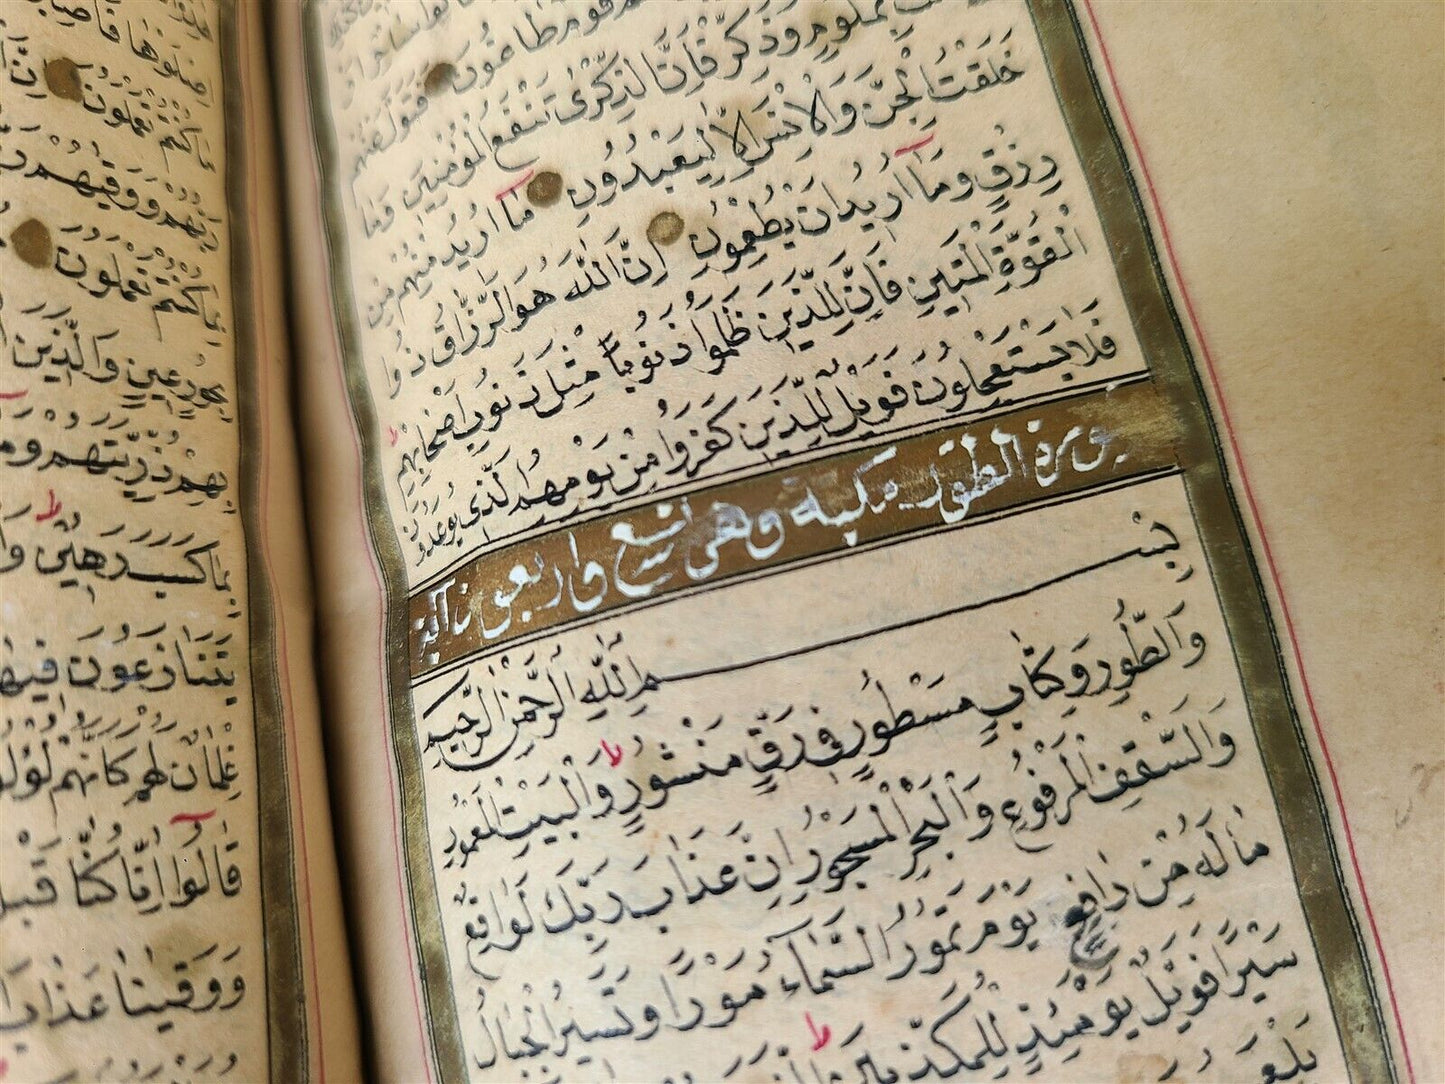 قَوْمٌ طَاغُونَ فَتَوَلَّ عَنْهُمْ
بِمَلُومٍ وَذَكِّرْ فَاِنَّ الذِّكْرٰى تَنْفَعُ الْمُؤْمِنِينَ وَمَا
خَلَقْتُ الْجِنَّ وَالْاِنْسَ اِلَّا لِيَعْبُدُونِ مَٓا اُرِيدُ مِنْهُمْ مِنْ
رِزْقٍ وَمَٓا اُرِيدُ اَنْ يُطْعِمُونِ اِنَّ اللّٰهَ هُوَ الرَّزَّاقُ ذُوا
الْقُوَّةِ الْمَتِينِ فَاِنَّ لِلَّذِينَ ظَلَمُوا ذَنُوبًا مِثْلَ ذَنُوبِ اَصْحَابِهِمْ
فَلَا يَسْتَعْجِلُونَ فَوَيْلٌ لِلَّذِينَ كَفَرُوا مِنْ يَوْمِهِمُ الَّذِي يُوعَدُونَ
سورة الطور مكية وهى تسع واربعون اية
بِسْمِ اللّٰهِ الرَّحْمٰنِ الرَّحِيمِ
وَالطُّورِ وَكِتَابٍ مَسْطُورٍ فِى رَقٍّ مَنْشُورٍ وَالْبَيْتِ الْمَعْمُورِ
وَالسَّقْفِ الْمَرْفُوعِ وَالْبَحْرِ الْمَسْجُورِ اِنَّ عَذَابَ رَبِّكَ لَوَاقِعٌ
مَا لَهُ مِنْ دَافِعٍ يَوْمَ تَمُورُ السَّمَٓاءُ مَوْرًا وَتَسِيرُ الْجِبَالُ
سَيْرًا فَوَيْلٌ يَوْمَئِذٍ لِلْمُكَذِّبِينَ
كُنْتُمْ تَعْمَلُونَ اِنَّ
رَبُّهُمْ وَوَقٰيهُمْ
كُنْتُمْ تَعْمَلُونَ
بِحُورٍ عِينٍ وَالَّذِينَ
بِهِمْ ذُرِّيَّتَهُمْ وَمَا
بِمَا كَسَبَ رَهِينٌ
يَتَنَازَعُونَ فِيهَا
غِلْمَانٌ لَهُمْ كَاَنَّهُمْ لُؤْلُؤٌ
قَالُٓوا اِنَّا كُنَّا قَبْلُ
وَوَقٰينَا عَذَابَ